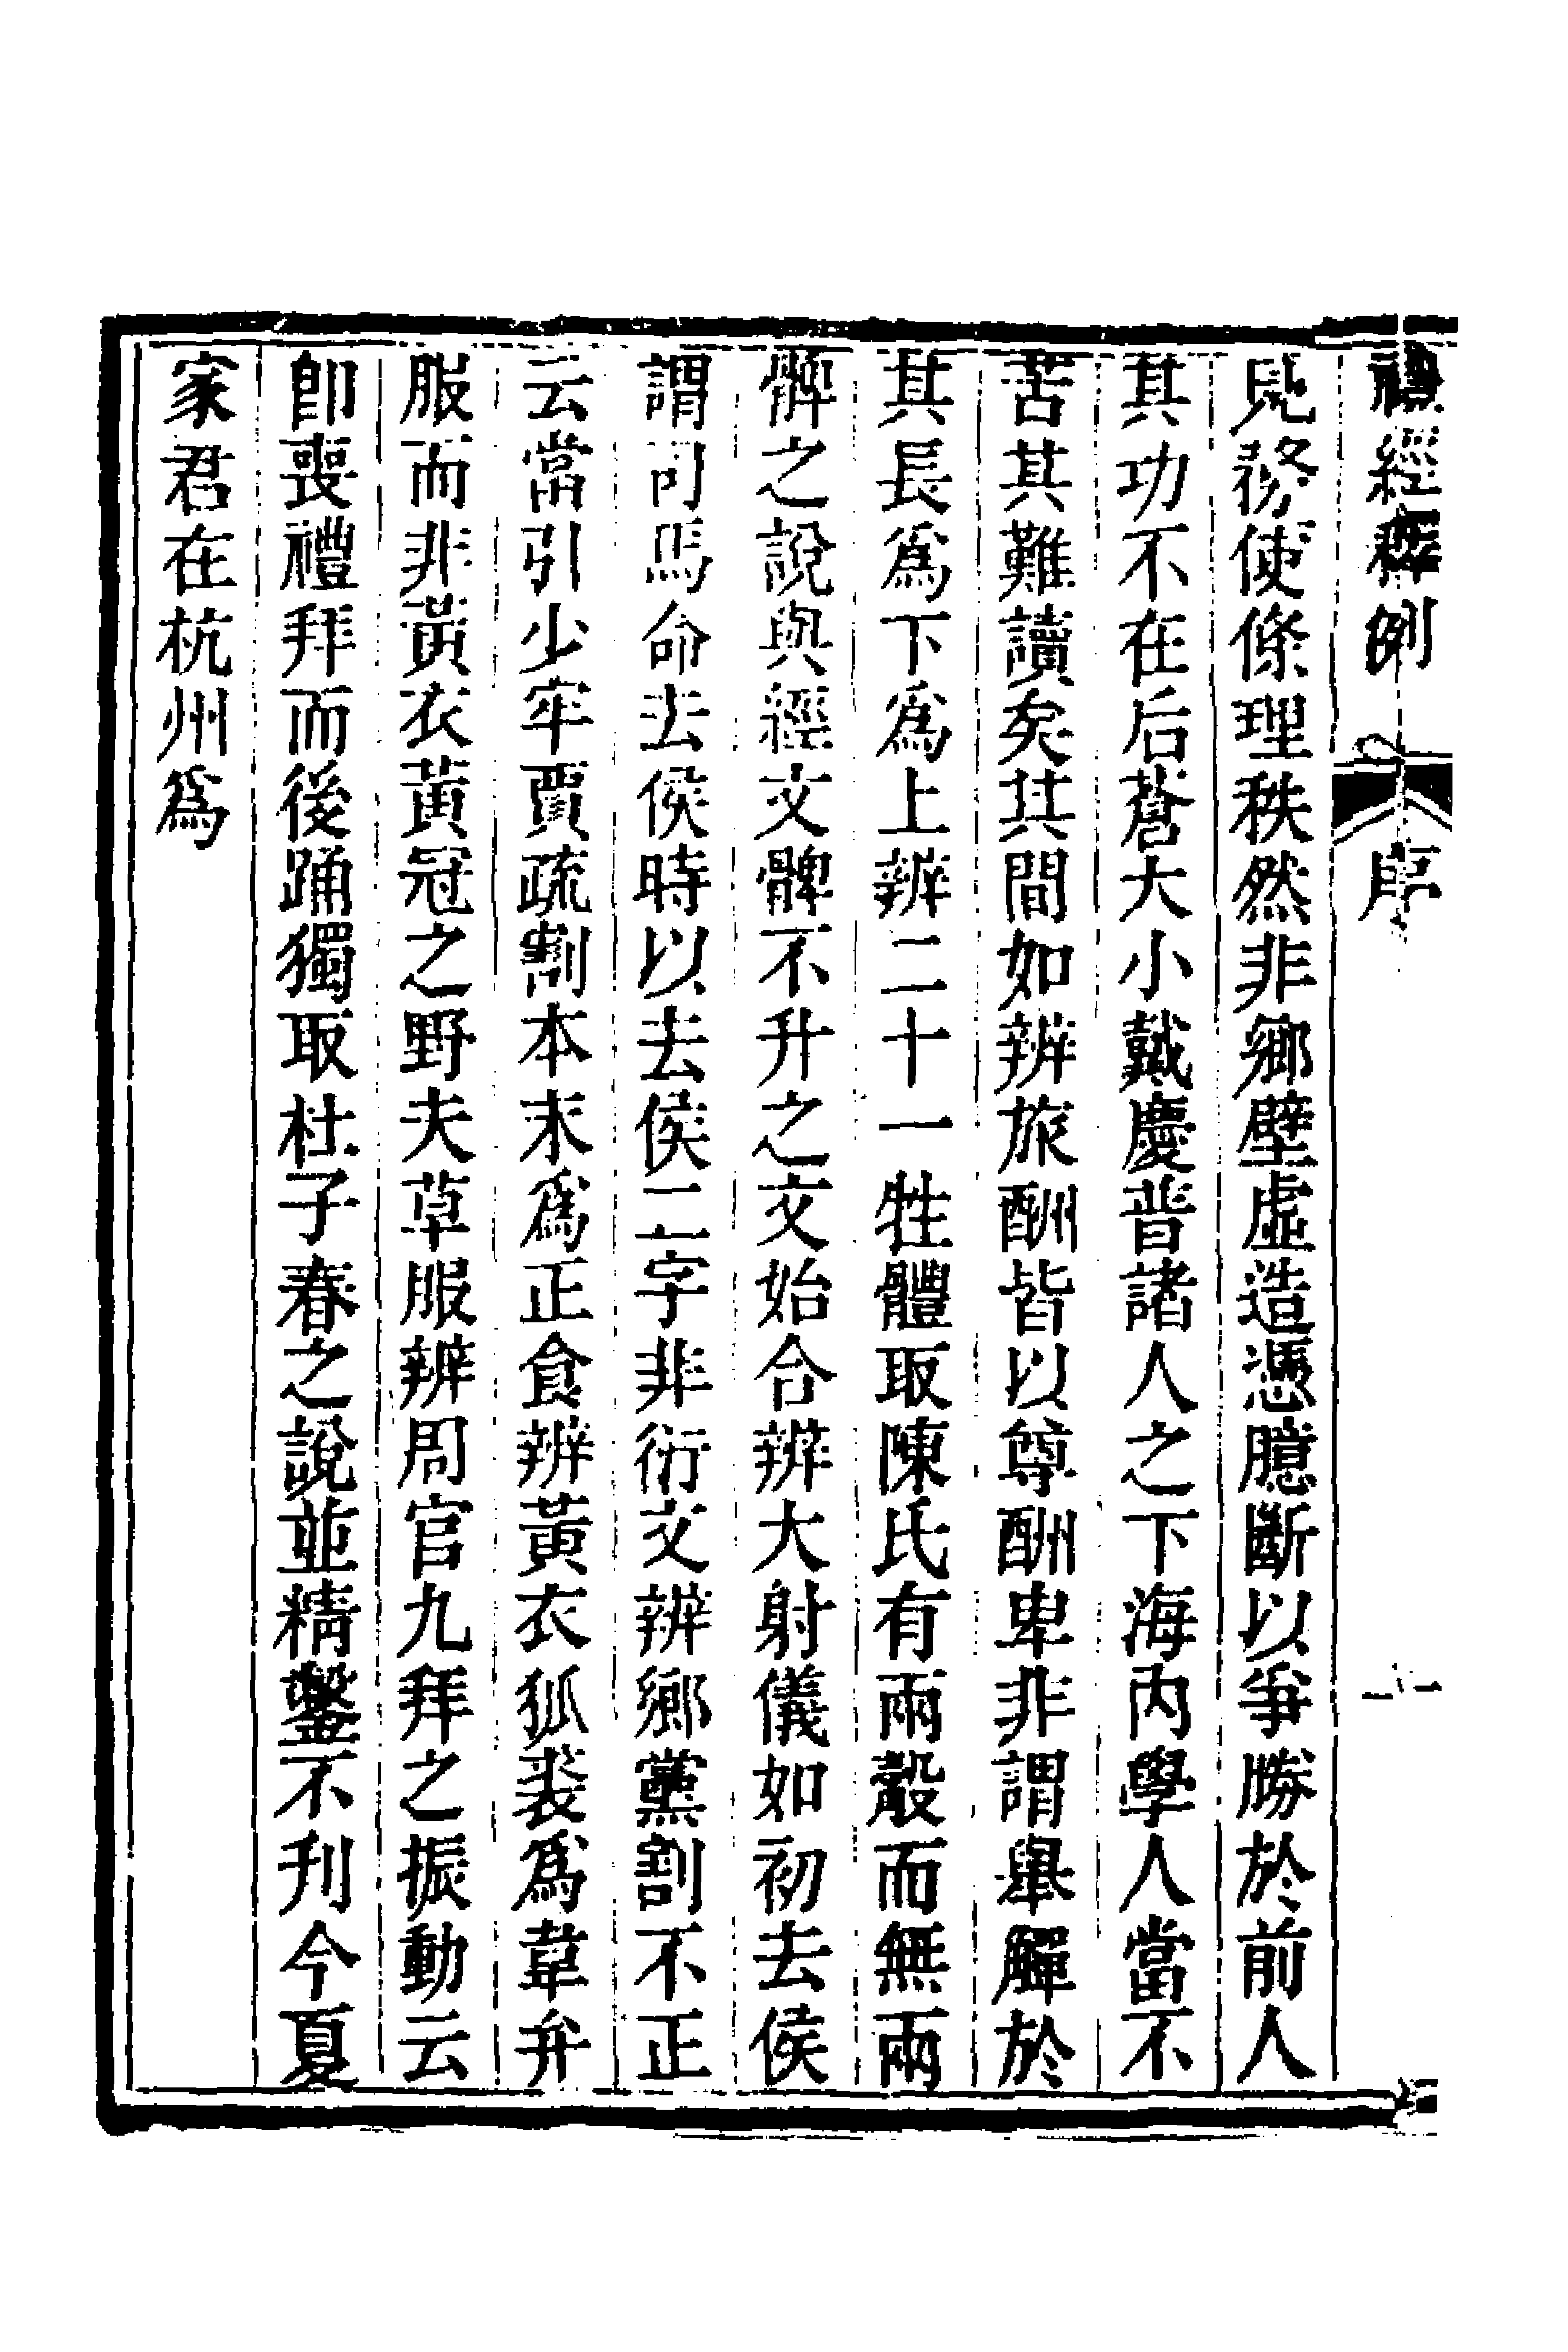 禮經釋例 序 一
見務使條理秩然非鄉壁虛造憑臆斷以爭勝於前人
其功不在后蒼大小戴慶普諸人之下海内學人當不
苦其難讀矣其間如辨旅酬皆以尊酬卑非謂舉觶於
其長爲下爲上辨二十一牲體取陳氏有兩觳而無兩
髀之說與經文髀不升之文始合辨大射儀如初去侯
謂司馬命去侯時以去侯二字非衍文辨鄉黨割不正
云當引少牢賈疏割本末爲正食辨黃衣狐裘爲韋弁
服而非黃衣黃冠之野夫草服辨周官九拜之振動云
卽喪禮拜而後踊獨取杜子春之說並精鑿不刋今夏
家君在杭州爲